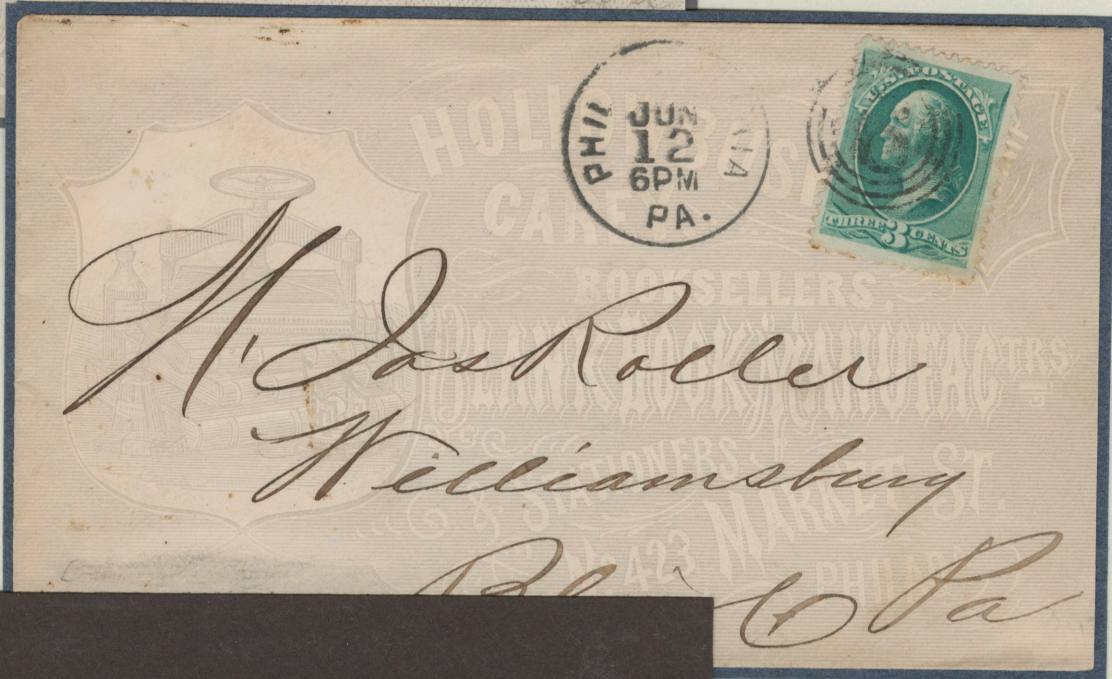 PHIL IA
JUN
12
6PM
PA.
U.S. POSTAGE
3
CENTS
BOOKSELLERS,
BLANK BOOK MANUFAC TRS
& STATIONERS
No 423 MARKET ST.
M. Jos Roller
Williamsbury
Pa